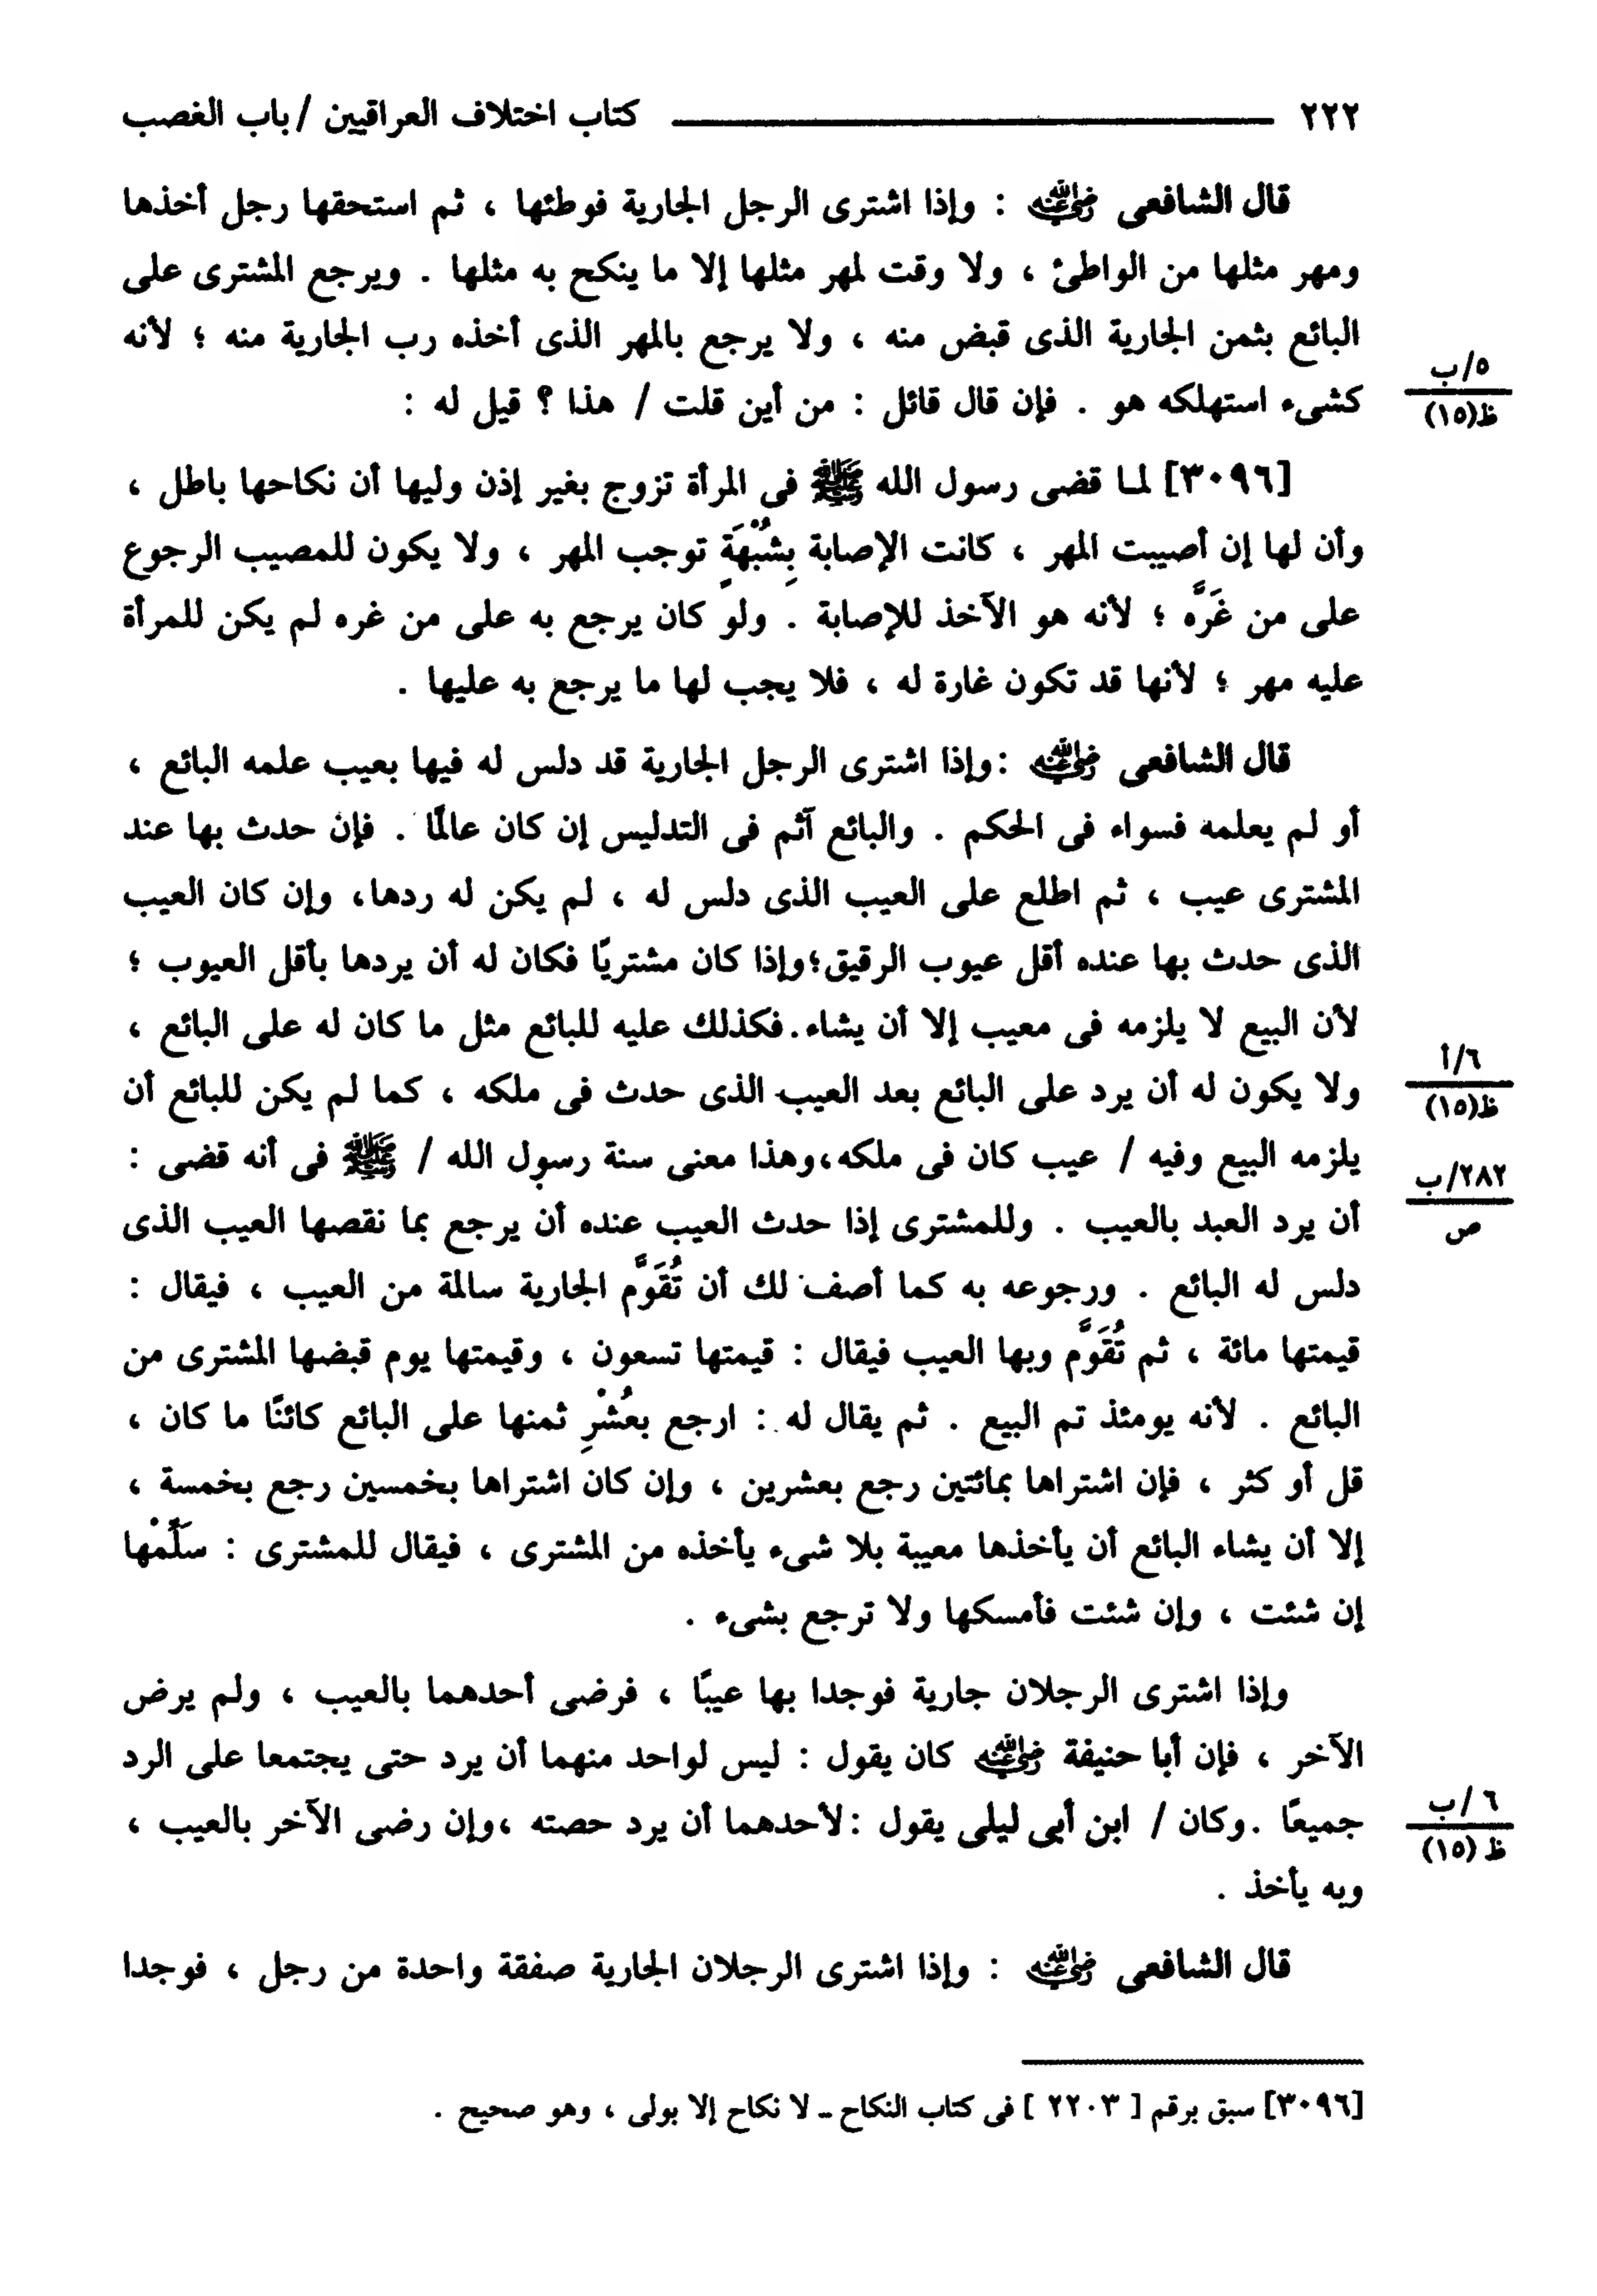 ٢٢٢ كتاب اختلاف العراقيين / باب الغصب
قال الشافعى رضي الله عنه : وإذا اشترى الرجل الجارية فوطئها ، ثم استحقها رجل أخذها
ومهر مثلها من الواطئ ، ولا وقت لمهر مثلها إلا ما ينكح به مثلها . ويرجع المشترى على
البائع بثمن الجارية الذى قبض منه ، ولا يرجع بالمهر الذى أخذه رب الجارية منه ؛ لأنه
كشىء استهلكه هو . فإن قال قائل : من أين قلت / هذا ؟ قيل له :
٥/ب
ظ(١٥)
[٣٠٩٦] لما قضى رسول الله ﷺ فى المرأة تزوج بغير إذن وليها أن نكاحها باطل ،
وأن لها إن أصيبت المهر ، كانت الإصابة بِشُبْهَةٍ توجب المهر ، ولا يكون للمصيب الرجوع
على من غَرَّه ؛ لأنه هو الآخذ للإصابة . ولو كان يرجع به على من غره لم يكن للمرأة
عليه مهر ؛ لأنها قد تكون غارة له ، فلا يجب لها ما يرجع به عليها .
قال الشافعى رضي الله عنه :وإذا اشترى الرجل الجارية قد دلس له فيها بعيب علمه البائع ،
أو لم يعلمه فسواء فى الحكم . والبائع آثم فى التدليس إن كان عالمًا . فإن حدث بها عند
المشترى عيب ، ثم اطلع على العيب الذى دلس له ، لم يكن له ردها، وإن كان العيب
الذى حدث بها عنده أقل عيوب الرقيق؛وإذا كان مشتريًا فكان له أن يردها بأقل العيوب ؛
لأن البيع لا يلزمه فى معيب إلا أن يشاء.فكذلك عليه للبائع مثل ما كان له على البائع ،
ولا يكون له أن يرد على البائع بعد العيب الذى حدث فى ملكه ، كما لم يكن للبائع أن
٦/أ
ظ(١٥)
يلزمه البيع وفيه / عيب كان فى ملكه،وهذا معنى سنة رسول الله / ﷺ فى أنه قضى :
٢٨٢/ب
ص
أن يرد العبد بالعيب . وللمشترى إذا حدث العيب عنده أن يرجع بما نقصها العيب الذى
دلس له البائع . ورجوعه به كما أصف لك أن تُقَوَّم الجارية سالمة من العيب ، فيقال :
قيمتها مائة ، ثم تُقَوَّم وبها العيب فيقال : قيمتها تسعون ، وقيمتها يوم قبضها المشترى من
البائع . لأنه يومئذ تم البيع . ثم يقال له : ارجع بعُشْرِ ثمنها على البائع كائنًا ما كان ،
قل أو كثر ، فإن اشتراها بمائتين رجع بعشرين ، وإن كان اشتراها بخمسين رجع بخمسة ،
إلا أن يشاء البائع أن يأخذها معيبة بلا شىء يأخذه من المشترى ، فيقال للمشترى : سَلِّمْها
إن شئت ، وإن شئت فأمسكها ولا ترجع بشىء .
وإذا اشترى الرجلان جارية فوجدا بها عيبًا ، فرضى أحدهما بالعيب ، ولم يرض
الآخر ، فإن أبا حنيفة رضي الله عنه كان يقول : ليس لواحد منهما أن يرد حتى يجتمعا على الرد
جميعًا .وكان / ابن أبى ليلى يقول :لأحدهما أن يرد حصته ،وإن رضى الآخر بالعيب ،
٦/ب
ظ (١٥)
وبه يأخذ .
قال الشافعى رضي الله عنه : وإذا اشترى الرجلان الجارية صفقة واحدة من رجل ، فوجدا
[٣٠٩٦] سبق برقم [ ٢٢٠٣ ] فى كتاب النكاح ـ لا نكاح إلا بولى ، وهو صحيح .